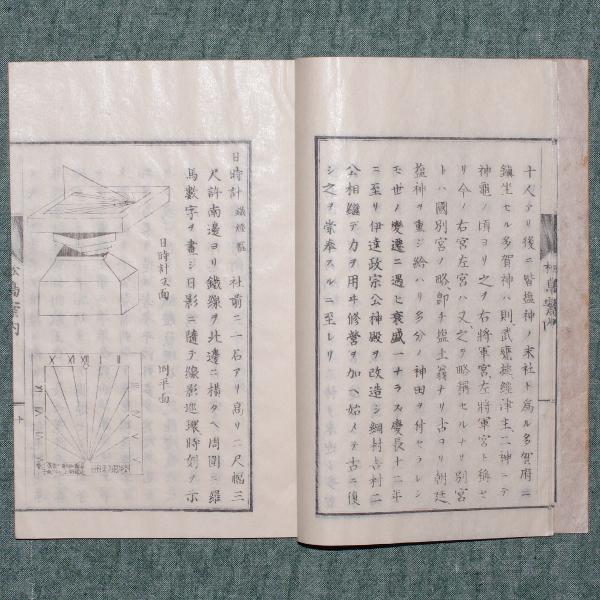 十人アリ後ニ皆塩神ノ末社ト為ル多賀府ニ
鎮坐セル多賀神ハ則武甕槌經津主二神ニテ
神亀ノ頃ヨリ之ヲ右将軍宮左将軍宮ト称セ
リ今ノ右宮左宮ハ又之ヲ略称セルナリ別宮
トハ國別宮ノ略即チ塩土翁ナリ古ロリ朝廷
塩神ヲ重ジ給ハリ多分ノ神田ヲ付セラレシ
モ世ノ變遷ニ遇ヒ衰盛一ナラス慶長十二年
ニ至リ伊達政宗公神殿ヲ改造シ綱村吉村二
公相継テカヲ用ヰ修營ヲ加ヘ始メテ古ニ復
シ之ヲ崇奉スルニ至レリ
日時計 鐵燈籠 社前ニ二石アリ高リ二尺幅三
尺許南邊ヨリ鐵線ヲ北邊ニ横タヘ周囲ニ羅
馬數字ヲ畫シ日影ニ隨テ線影巡環時刻ヲ示
日時計立面
同平面
X XI XII I II
松島案内
十